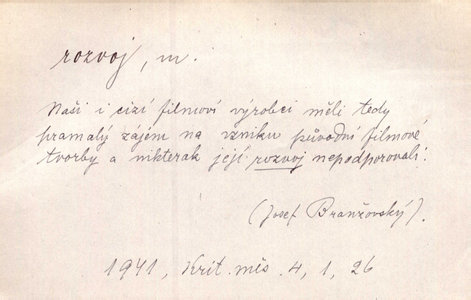 rozvoj, m.
Naši i cizí filmoví výrobci měli tedy
pramalý zájem na vzniku původní filmové
tvorby a nikterak její rozvoj nepodporovali.
(Josef Branžovský).
1941, Krit. měs. 4, 1, 26